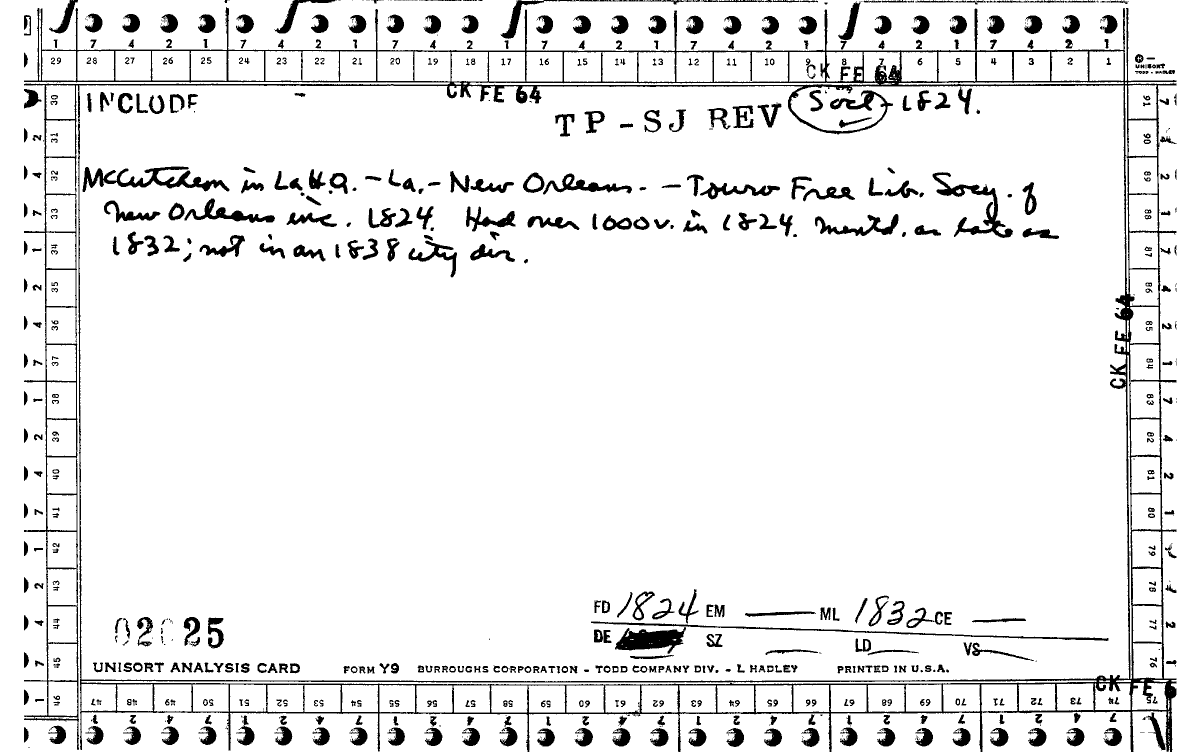 7 4 2 1 7 4 2 1 7 4 2 1 7 4 2 1 7 4 2 1 7 4 2 1 7 4 2 1
29 28 27 26 25 24 23 22 21 20 19 18 17 16 15 14 13 12 11 10 9 8 7 6 5 4 3 2 1
UNISORT
TODD - HADLEY
CK FE 64
CK FE 64
INCLUDE
TP-SJ REV
Socl - 1824.
McCutcheon in La.H.Q. - La. - New Orleans. - Touro Free Lib. Socy. of
New Orleans inc. 1824. Had over 1000 v. in 1824. Mentd. as late as
1832; not in an 1838 city dir.
30 31 32 33 34 35 36 37 38 39 40 41 42 43 44 45 46
91 90 89 88 87 86 85 84 83 82 81 80 79 78 77 76 75
CK FE 64
FD 1824 EM — ML 1832 CE —
DE SZ — LD — VS —
02 25
UNISORT ANALYSIS CARD FORM Y9 BURROUGHS CORPORATION - TODD COMPANY DIV. - L HADLEY PRINTED IN U.S.A.
CK FE 6
47 48 49 50 51 52 53 54 55 56 57 58 59 60 61 62 63 64 65 66 67 68 69 70 71 72 73 74
1 2 4 7 1 2 4 7 1 2 4 7 1 2 4 7 1 2 4 7 1 2 4 7 1 2 4 7